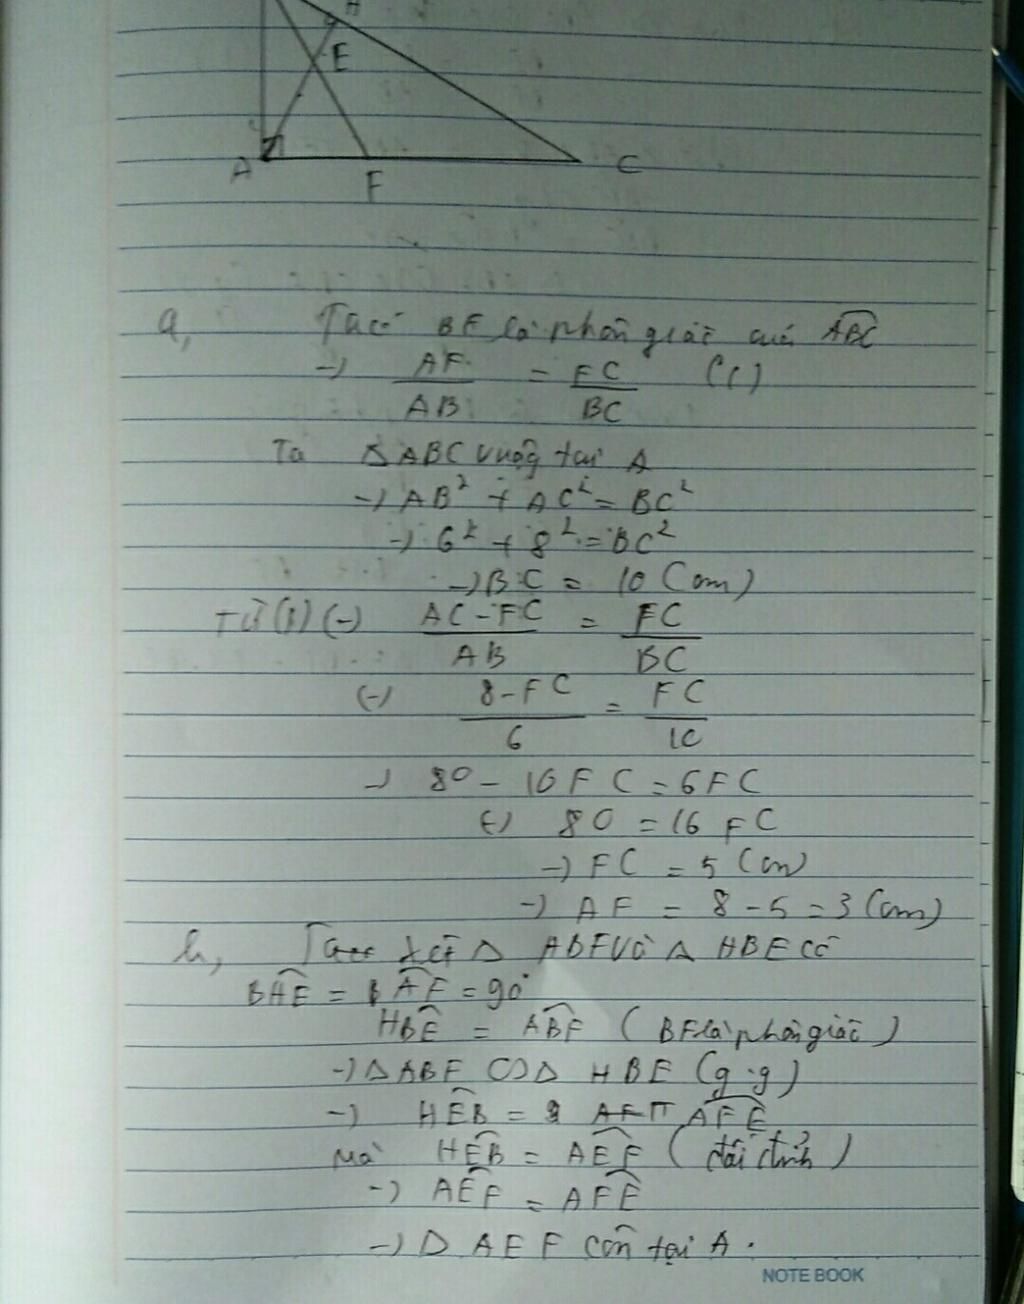 H
E
A
F
C
a, Ta có BF là phân giác của ABC
→ AF/AB = FC/BC (1)
Ta ΔABC vuông tại A
→ AB² + AC² = BC²
→ 6² + 8² = BC²
→ BC = 10 (cm)
Từ (1) (→) AC - FC/AB = FC/BC
(→) 8 - FC/6 = FC/10
→ 80 - 10FC = 6FC
(→) 80 = 16 FC
→ FC = 5 (cm)
→ AF = 8 - 5 = 3 (cm)
b, xét Δ ABF và Δ HBE có
BHE = BAF = 90°
HBE = ABF (BF là phân giác)
→ Δ ABF ∽ Δ HBE (g.g)
→ HEB = AFE
Mà HEB = AEF (đối đỉnh)
→ AEF = AFE
→ Δ AEF cân tại A.
NOTE BOOK